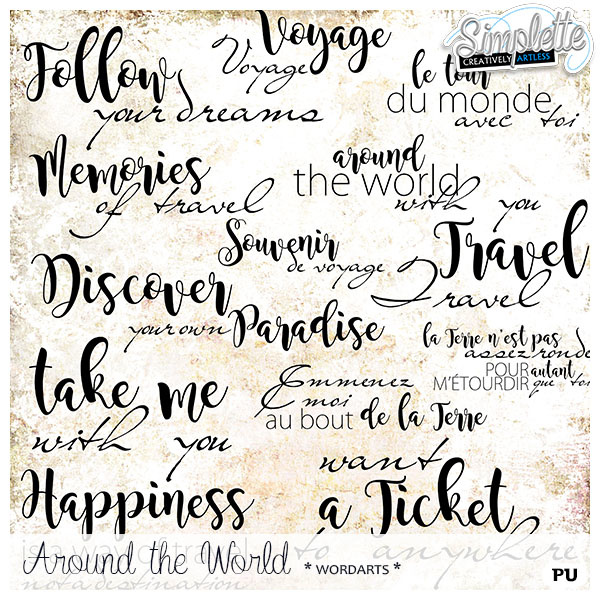 Simplette
CREATIVELY ARTLESS
Voyage
Voyage
Follow
your dreams
le tour
du monde
avec toi
Memories
of travel
around
the world
with you
Souvenir
de voyage
Travel
Travel
Discover
your own Paradise
la Terre n'est pas
assez ronde
POUR autant
M'ÉTOURDIR que toi
take me
with you
Emmenez
moi
au bout de la Terre
want
a Ticket
to anywhere
Happiness
is a way of travel
not a destination
Around the World * WORDARTS *
PU